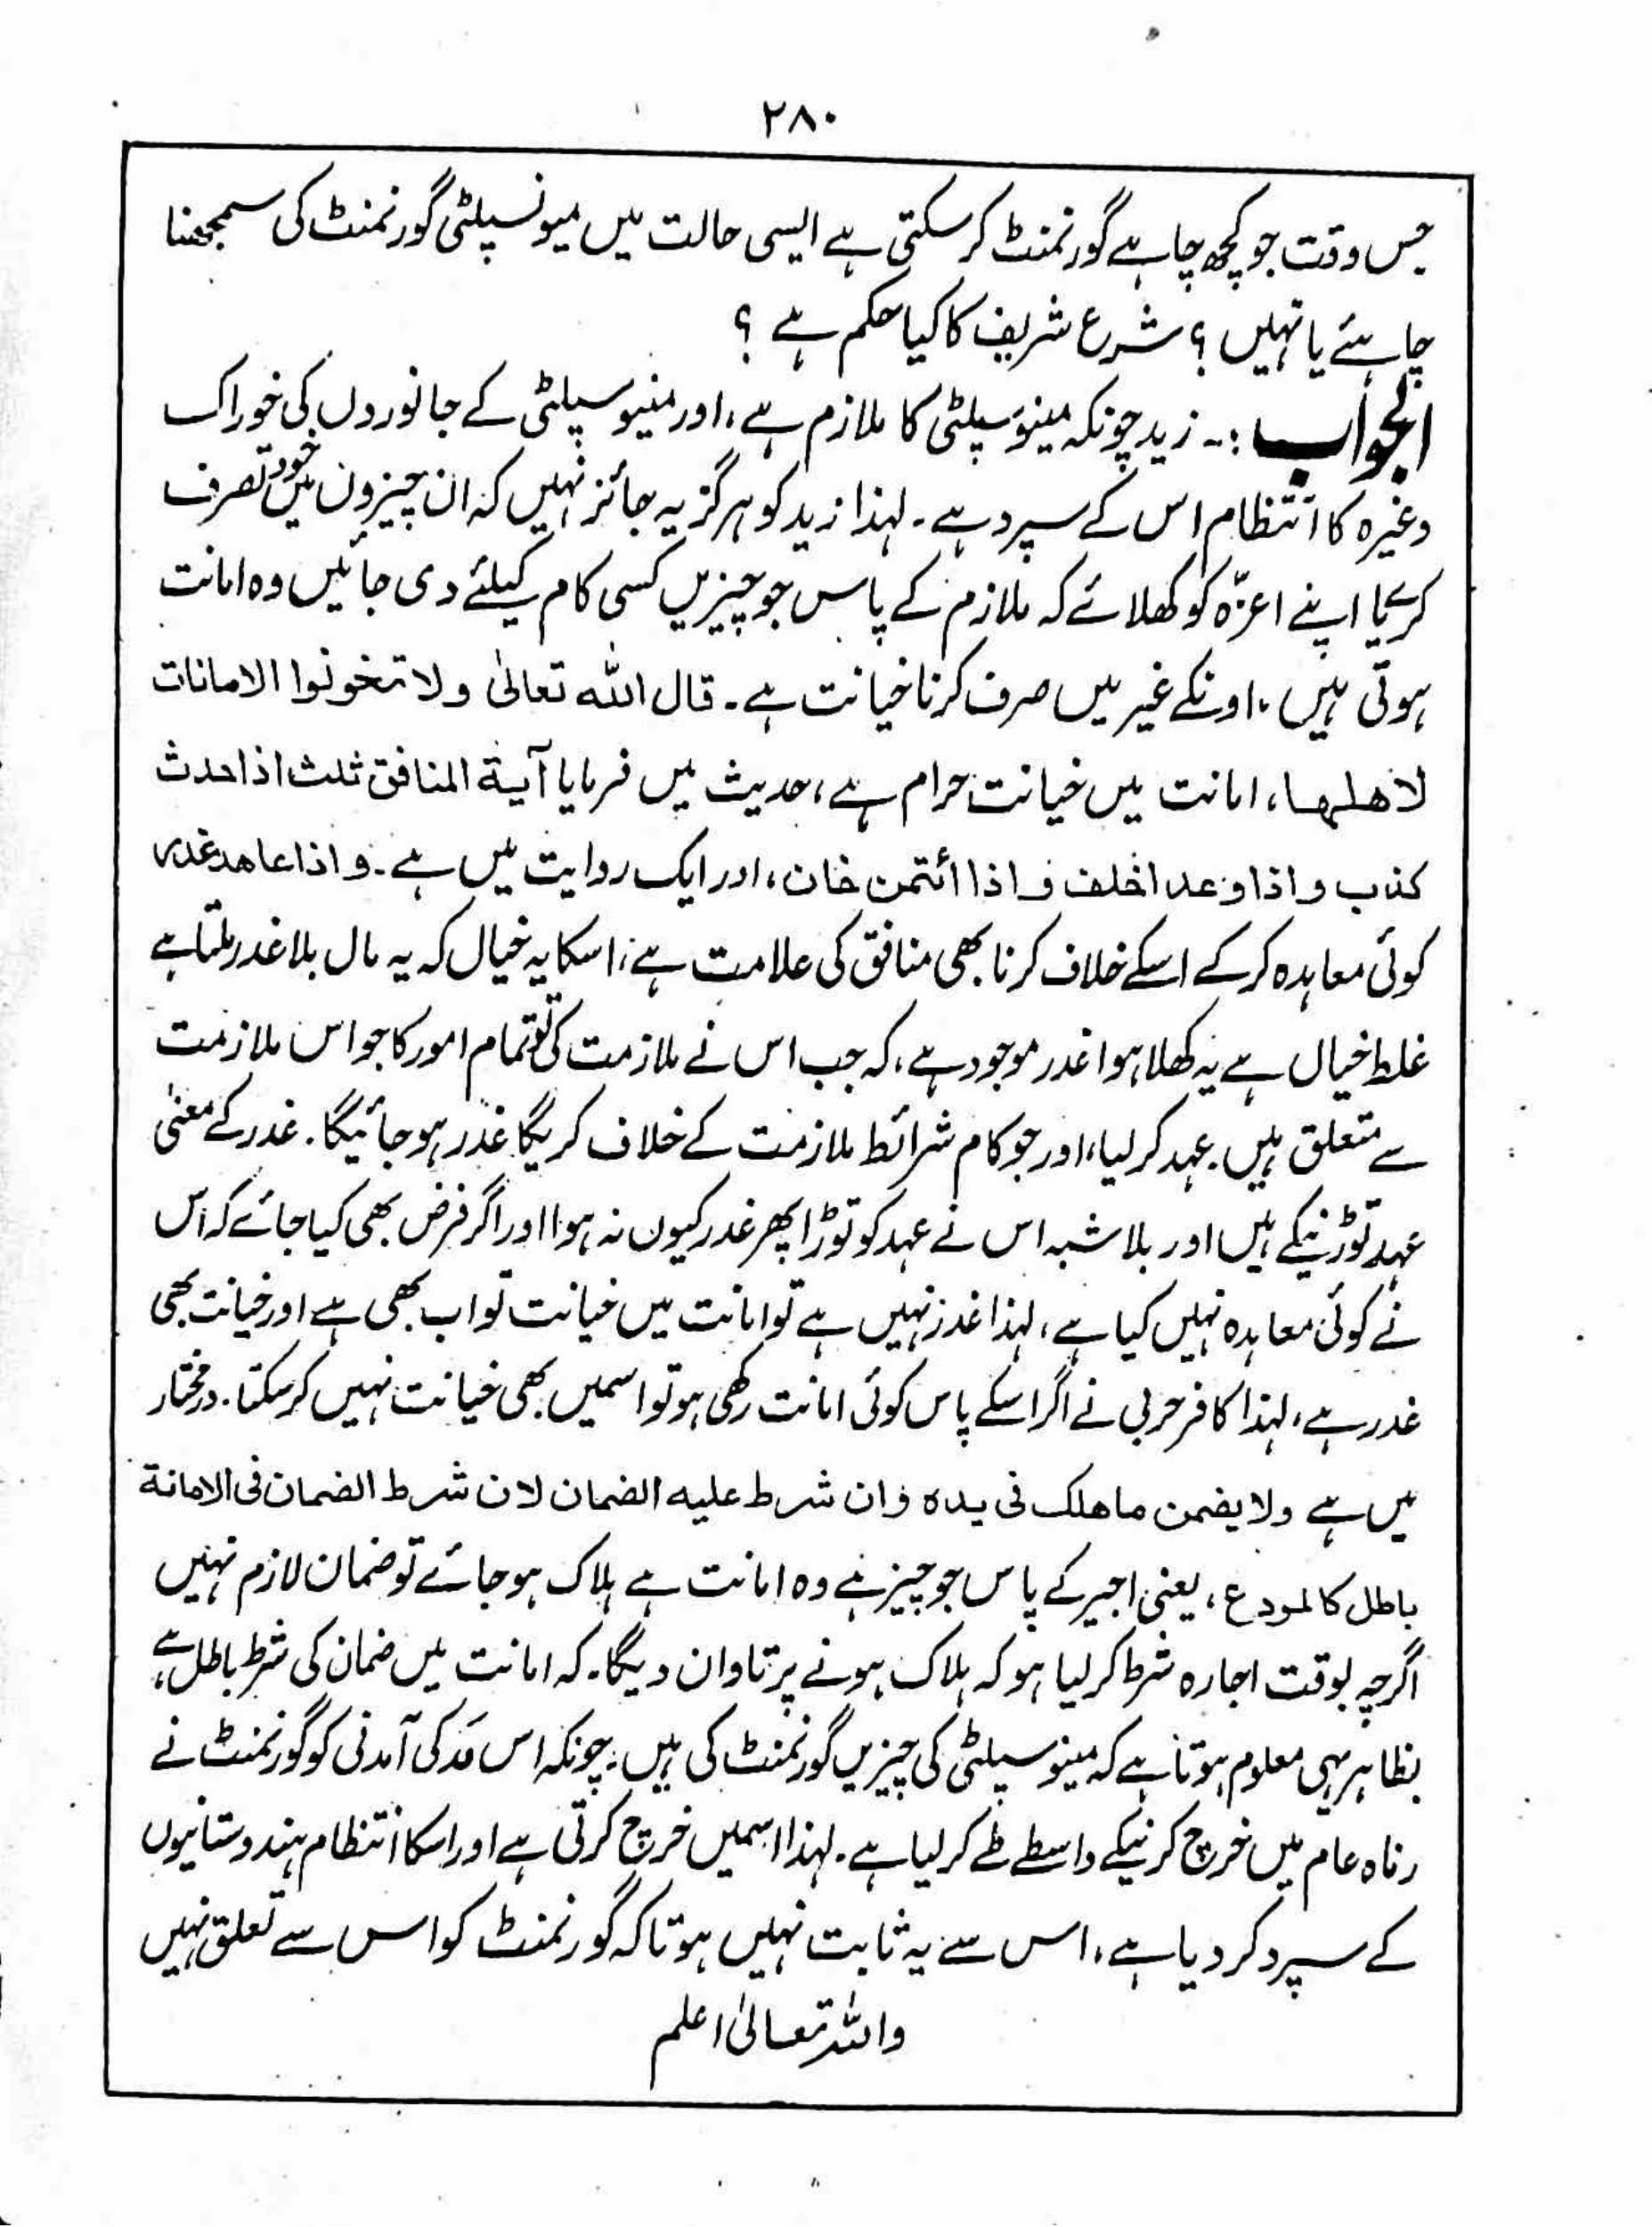 ۲۸۰
جس وقت جو کچھ چاہے گورنمنٹ کرسکتی ہے ایسی حالت میں میونسپلٹی گورنمنٹ کی سمجھنا
چاہئے یا نہیں ؟ شرع شریف کا کیا حکم ہے ؟
الجواب :۔ زید چونکہ مینوسپلٹی کا ملازم ہے ، اور منیوسپلٹی کے جانوروں کی خوراک
وغیرہ کا انتظام اس کے سپرد ہے ۔ لہذا زید کو ہرگز یہ جائز نہیں کہ ان چیزوں میں خود تصرف
کرے یا اپنے اعزّہ کو کھلائے کہ ملازم کے پاس جو چیزیں کسی کام کیلئے دی جائیں وہ امانت
ہوتی ہیں ، اونکے غیر میں صرف کرنا خیانت ہے ۔ قال اللہ تعالیٰ ولا تخونوا الامانات
لاھلھا ، امانت میں خیانت حرام ہے ، حدیث میں فرمایا آیۃ المنافق ثلث اذا حدث
کذب و اذا وعد اخلف و اذا ائتمن خان ، اور ایک روایت میں ہے ۔ و اذا عاھد غدر
کوئی معاہدہ کرکے اسکے خلاف کرنا بھی منافق کی علامت ہے ، اسکا یہ خیال کہ یہ مال بلا غدر ملتا ہے
غلط خیال ہے یہ کھلا ہوا غدر موجود ہے ، کہ جب اس نے ملازمت کی تو تمام امور کا جو اس ملازمت
سے متعلق ہیں ۔ عہد کرلیا ، اور جو کام شرائط ملازمت کے خلاف کریگا غدر ہو جائیگا . غدر کے معنیٰ
عہد توڑنیکے ہیں اور بلا شبہ اس نے عہد کو توڑا پھر غدر کیوں نہ ہوا اور اگر فرض بھی کیا جائے کہ اس
نے کوئی معاہدہ نہیں کیا ہے ، لہذا غدر نہیں ہے تو امانت میں خیانت تو اب بھی ہے اور خیانت بھی
غدر ہے ، لہذا کافر حربی نے اگر اسکے پاس کوئی امانت رکھی ہو تو اسمیں بھی خیانت نہیں کرسکتا . درمختار
میں ہے ولا یضمن ما ھلک فی یدہ وان شرط علیہ الضمان لان شرط الضمان فی الامانۃ
باطل کالمودع ، یعنی اجیر کے پاس جو چیز ہے وہ امانت ہے ہلاک ہو جائے تو ضمان لازم نہیں
اگرچہ بوقت اجارہ شرط کرلیا ہو کہ ہلاک ہونے پر تاوان دیگا ۔ کہ امانت میں ضمان کی شرط باطل ہے ،
بظاہر یہی معلوم ہوتا ہے کہ مینوسپلٹی کی چیزیں گورنمنٹ کی ہیں ، چونکہ اس مَد کی آمدنی کو گورنمنٹ نے
رفاہ عام میں خرچ کرنیکے واسطے طے کرلیا ہے ۔ لہذا اسمیں خرچ کرتی ہے اور اسکا انتظام ہندوستانیوں
کے سپرد کردیا ہے ، اس سے یہ ثابت نہیں ہوتا کہ گورنمنٹ کو اس سے تعلق نہیں
واللہ تعالیٰ اعلم